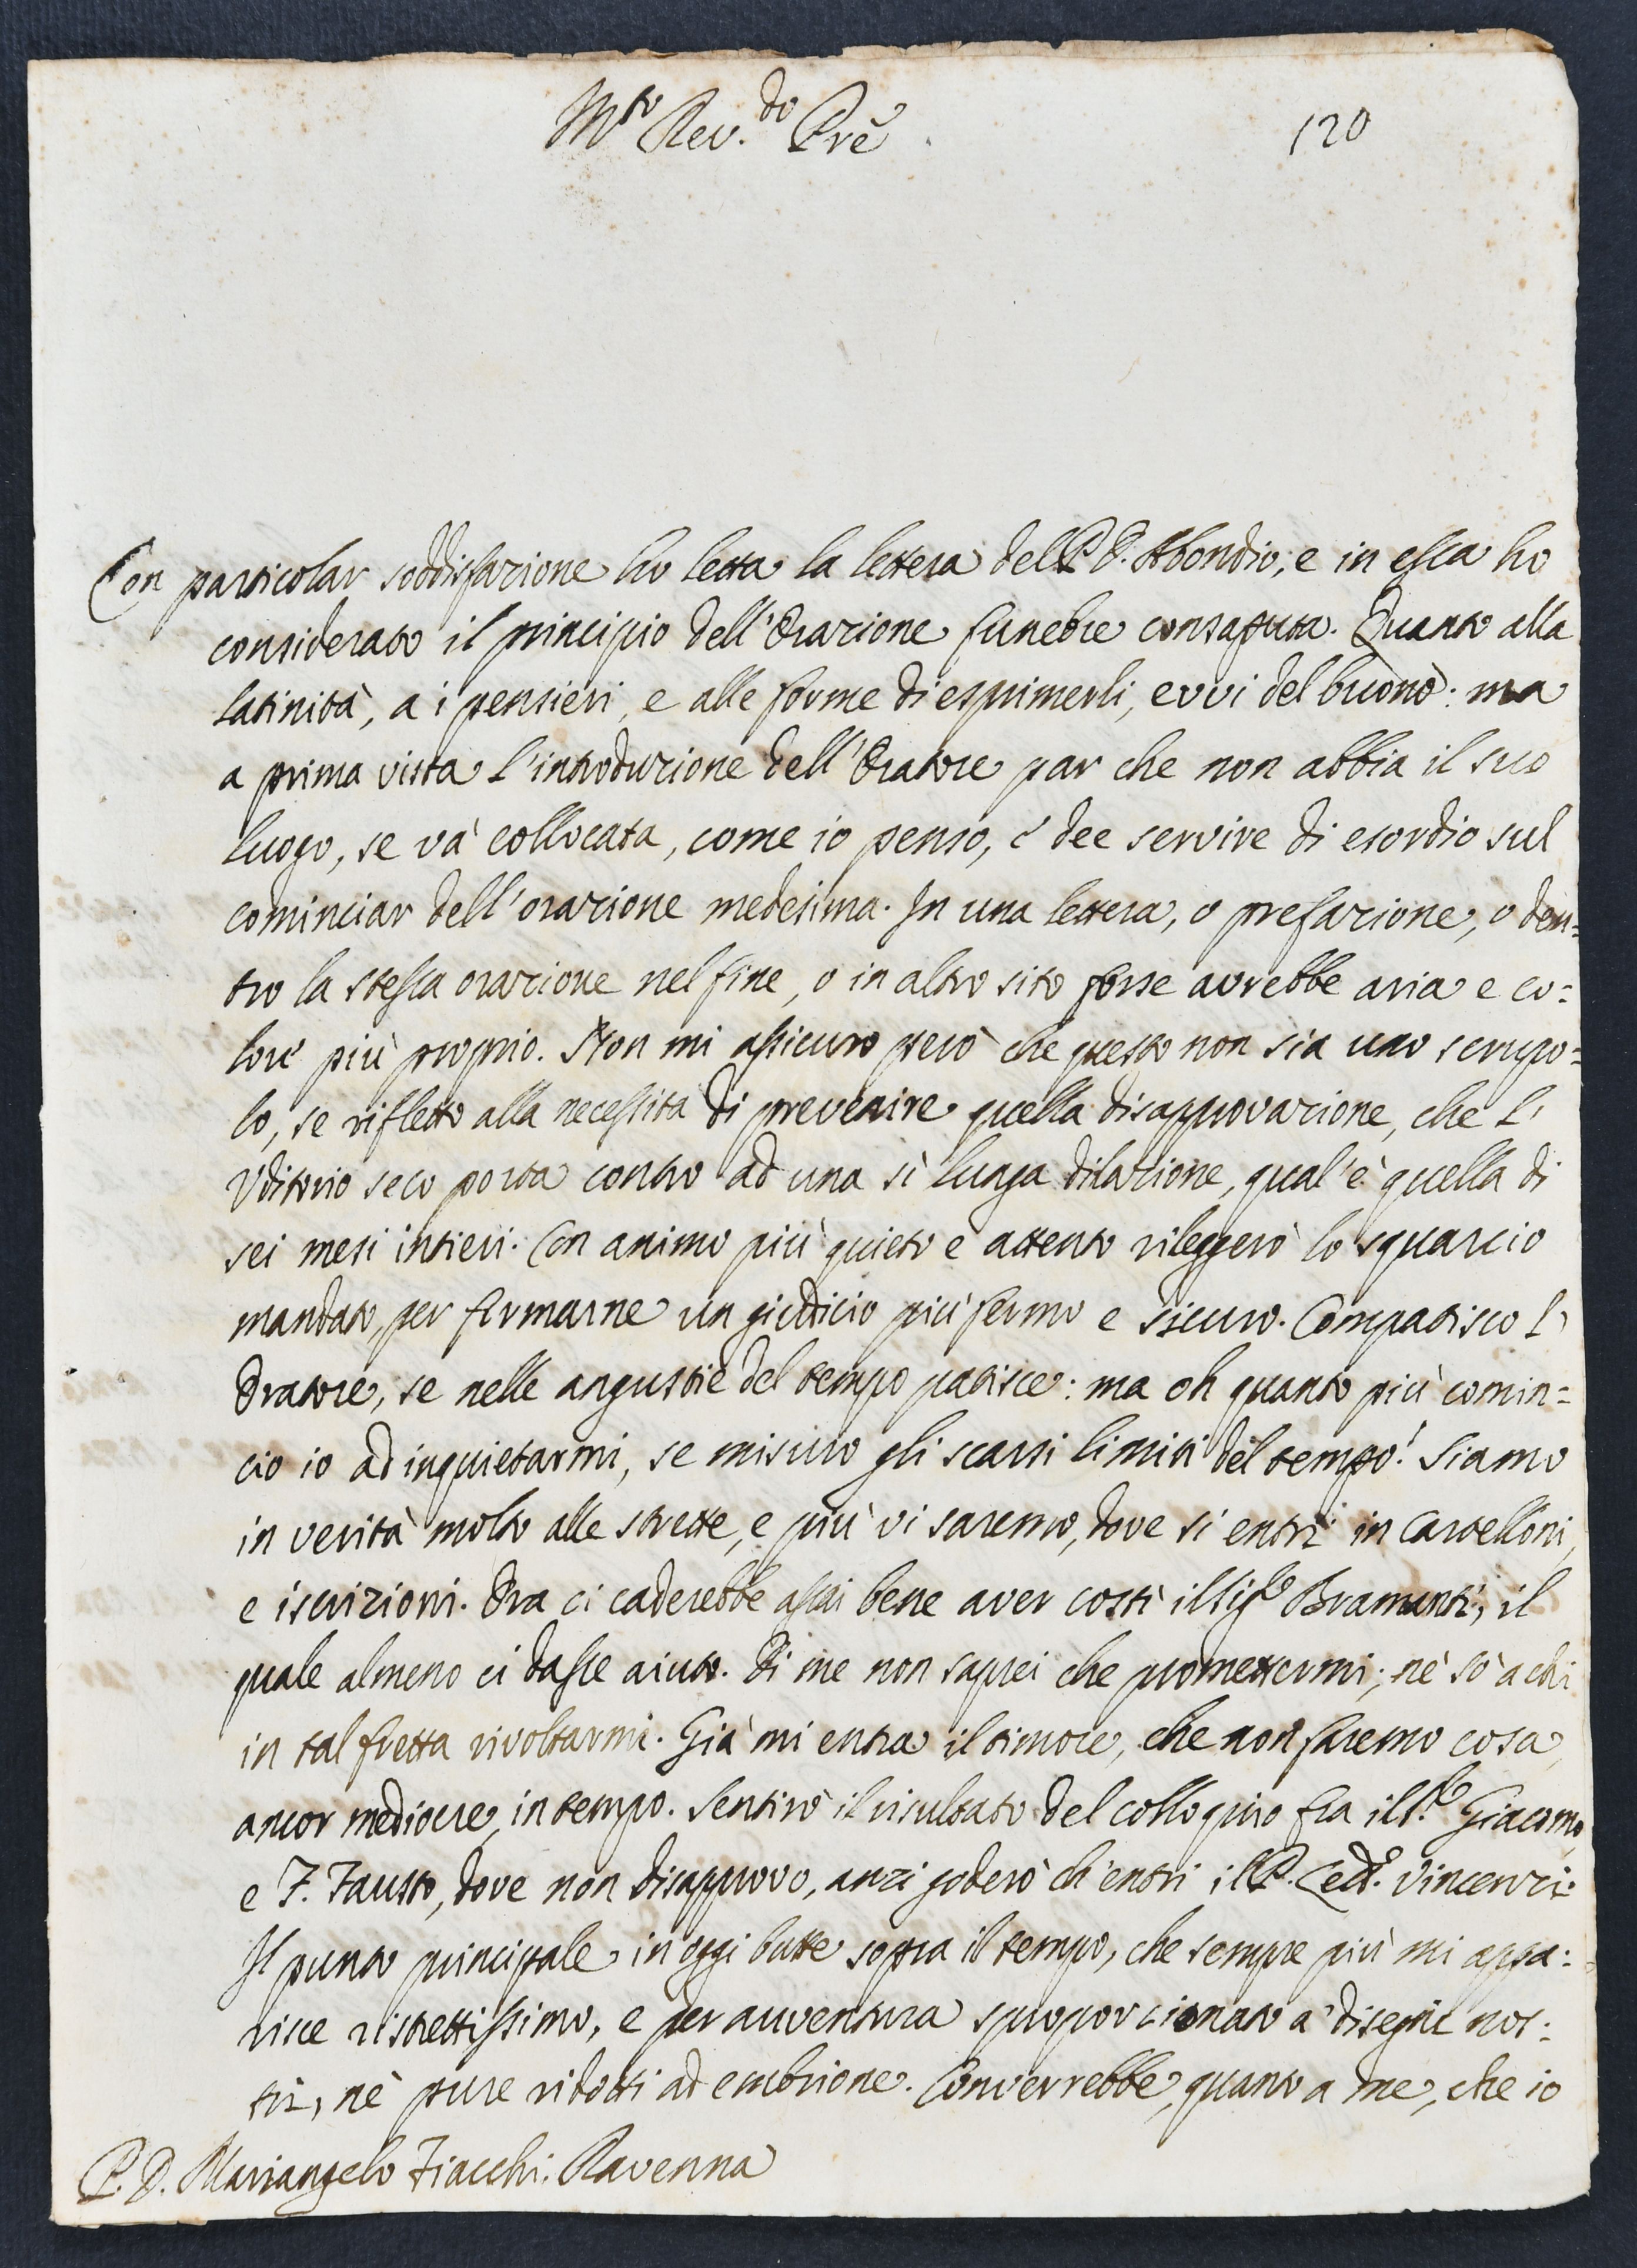 M.to Rev.do Prẽ
120
Con particolar soddisfazione ho letta la lettera del P. D. Abondio, e in essa ho
considerato il principio dell'Orazione funebre consaputa. Quanto alla
latinità, a i pensieri, e alle forme di esprimerli, evvi del buono: ma
a prima vista l'introduzione dell'Oratore par che non abbia il suo
luogo, se và collocata, come io penso, e dee servire di esordio sul
cominciar dell'orazione medesima. In una lettera, o prefazione, o den=
tro la stessa orazione nel fine, o in altro sito forse avrebbe aria e co=
lore più proprio. Non mi assicuro però che questo non sia uno scrupo=
lo, se rifletto alla necessità di prevenire quella disapprovazione, che l'
Uditorio seco porta contro ad una sì lunga dilazione, qual'è quella di
sei mesi intieri. Con animo più quieto e attento rileggerò lo squarcio
mandato, per formarne un giudicio più fermo e sicuro. Compatisco l'
Oratore, se nelle angustie del tempo patisce: ma oh quanto più comin=
cio io ad inquietarmi, se misuro gli scarsi limiti del tempo! Siamo
in verità molto alle strette, e più vi saremo, dove si entri in cartelloni,
e iscrizioni. Ora ci caderebbe assai bene aver costì il Sig.re Bramanti, il
quale almeno ci dasse aiuto. Di me non saprei che promettermi; nè sò a chi
in tal fretta rivoltarmi. Già mi entra il timore, che non faremo cosa,
ancor mediocre, in tempo. Sentirò il risultato del colloquio fra il S.re Giacomo,
e F. Fausto, dove non disapprovo, anzi goderò ch'entri il P. Vincenzi.
Il punto principale in oggi batte sopra il tempo, che sempre più mi appa=
risce ristrettissimo, e per avventura sproporzionato a' disegni nos=
tri, nè pure ridotti ad embrione. Converrebbe, quanto a me, che io
P. D. Mariangelo Fiacchi. Ravenna